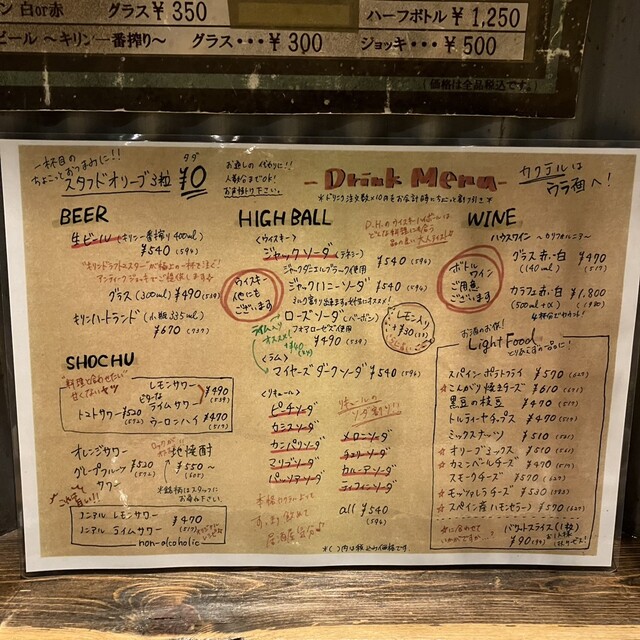 ン 白or赤 グラス ¥ 350 ハーフボトル ¥ 1,250
ビール 〜キリン一番搾り〜 グラス・・・¥ 300 ジョッキ・・・¥ 500
(価格は全品税込です。)
一杯目の
ちょこっとおつまみに!!
スタッフドオリーブ3粒
タダ
¥0
お通しの代わりに!!
人数分までOK!
お声掛け下さい。
- Drink Menu -
カクテルは
ウラ面へ!
BEER
生ビール (キリン一番搾り 400ml)
¥540 (594)
グラス (300ml) ¥490 (539)
キリンハートランド (小瓶 335ml)
¥670 (737)
SHOCHU
料理に合わせたい
甘くないヤツ
レモンサワー
ビターな
ライムサワー
¥490
(539)
トマトサワー ¥520
(572)
ウーロンハイ ¥470
(517)
オレンジサワー
グレープフルーツ
サワー
¥520
(572)
地焼酎
¥550〜
(605)
※銘柄はスタッフに
お尋ね下さい。
ノンアル レモンサワー
ノンアル ライムサワー
¥470
(517)
non-alcoholic
HIGH BALL
〈ウイスキー〉
ジャックソーダ (テネシー)
ジャックダニエルブラック使用
¥540 (594)
ジャックハニーソーダ ¥540 (594)
ローズソーダ (バーボン)
フォアローゼズ使用
¥490 (539)
ライム入り
オススメ!
+¥40
レモン入り
+¥30
〈ラム〉
マイヤーズダークソーダ ¥540 (594)
ウイスキー
他にも
ございます
〈リキュール〉
ピーチソーダ
カシスソーダ
カンパリソーダ
マリブソーダ
パッソアソーダ
メロンソーダ
チェリーソーダ
カルーアソーダ
ティフィンソーダ
リキュールの
ソーダ割り!!
all ¥540
(594)
※( )内は税込み価格です
WINE
ハウスワイン 〜カリフォルニア〜
グラス 赤・白
(140ml)
¥470
(517)
カラフェ 赤・白
(500ml+α)
¥1,800
(1980)
ボトル
ワイン
ご用意
ございます
お酒のお供!
Light Food
とりあえずの一品に!
スペイン・ポテトフライ ¥570 (627)
☆こんがり焼きチーズ ¥610 (671)
黒豆の枝豆 ¥470 (517)
トルティーヤチップス ¥470 (517)
ミックスナッツ ¥510 (561)
☆オリーブミックス ¥510 (561)
☆カマンベールチーズ ¥470 (517)
スモークチーズ ¥570 (627)
☆モッツァレラチーズ ¥530 (583)
☆スペイン産ハモンセラーノ ¥570 (627)
☆に合わせて
いかがですか…?
バケットスライス (1枚)
¥90 (99)